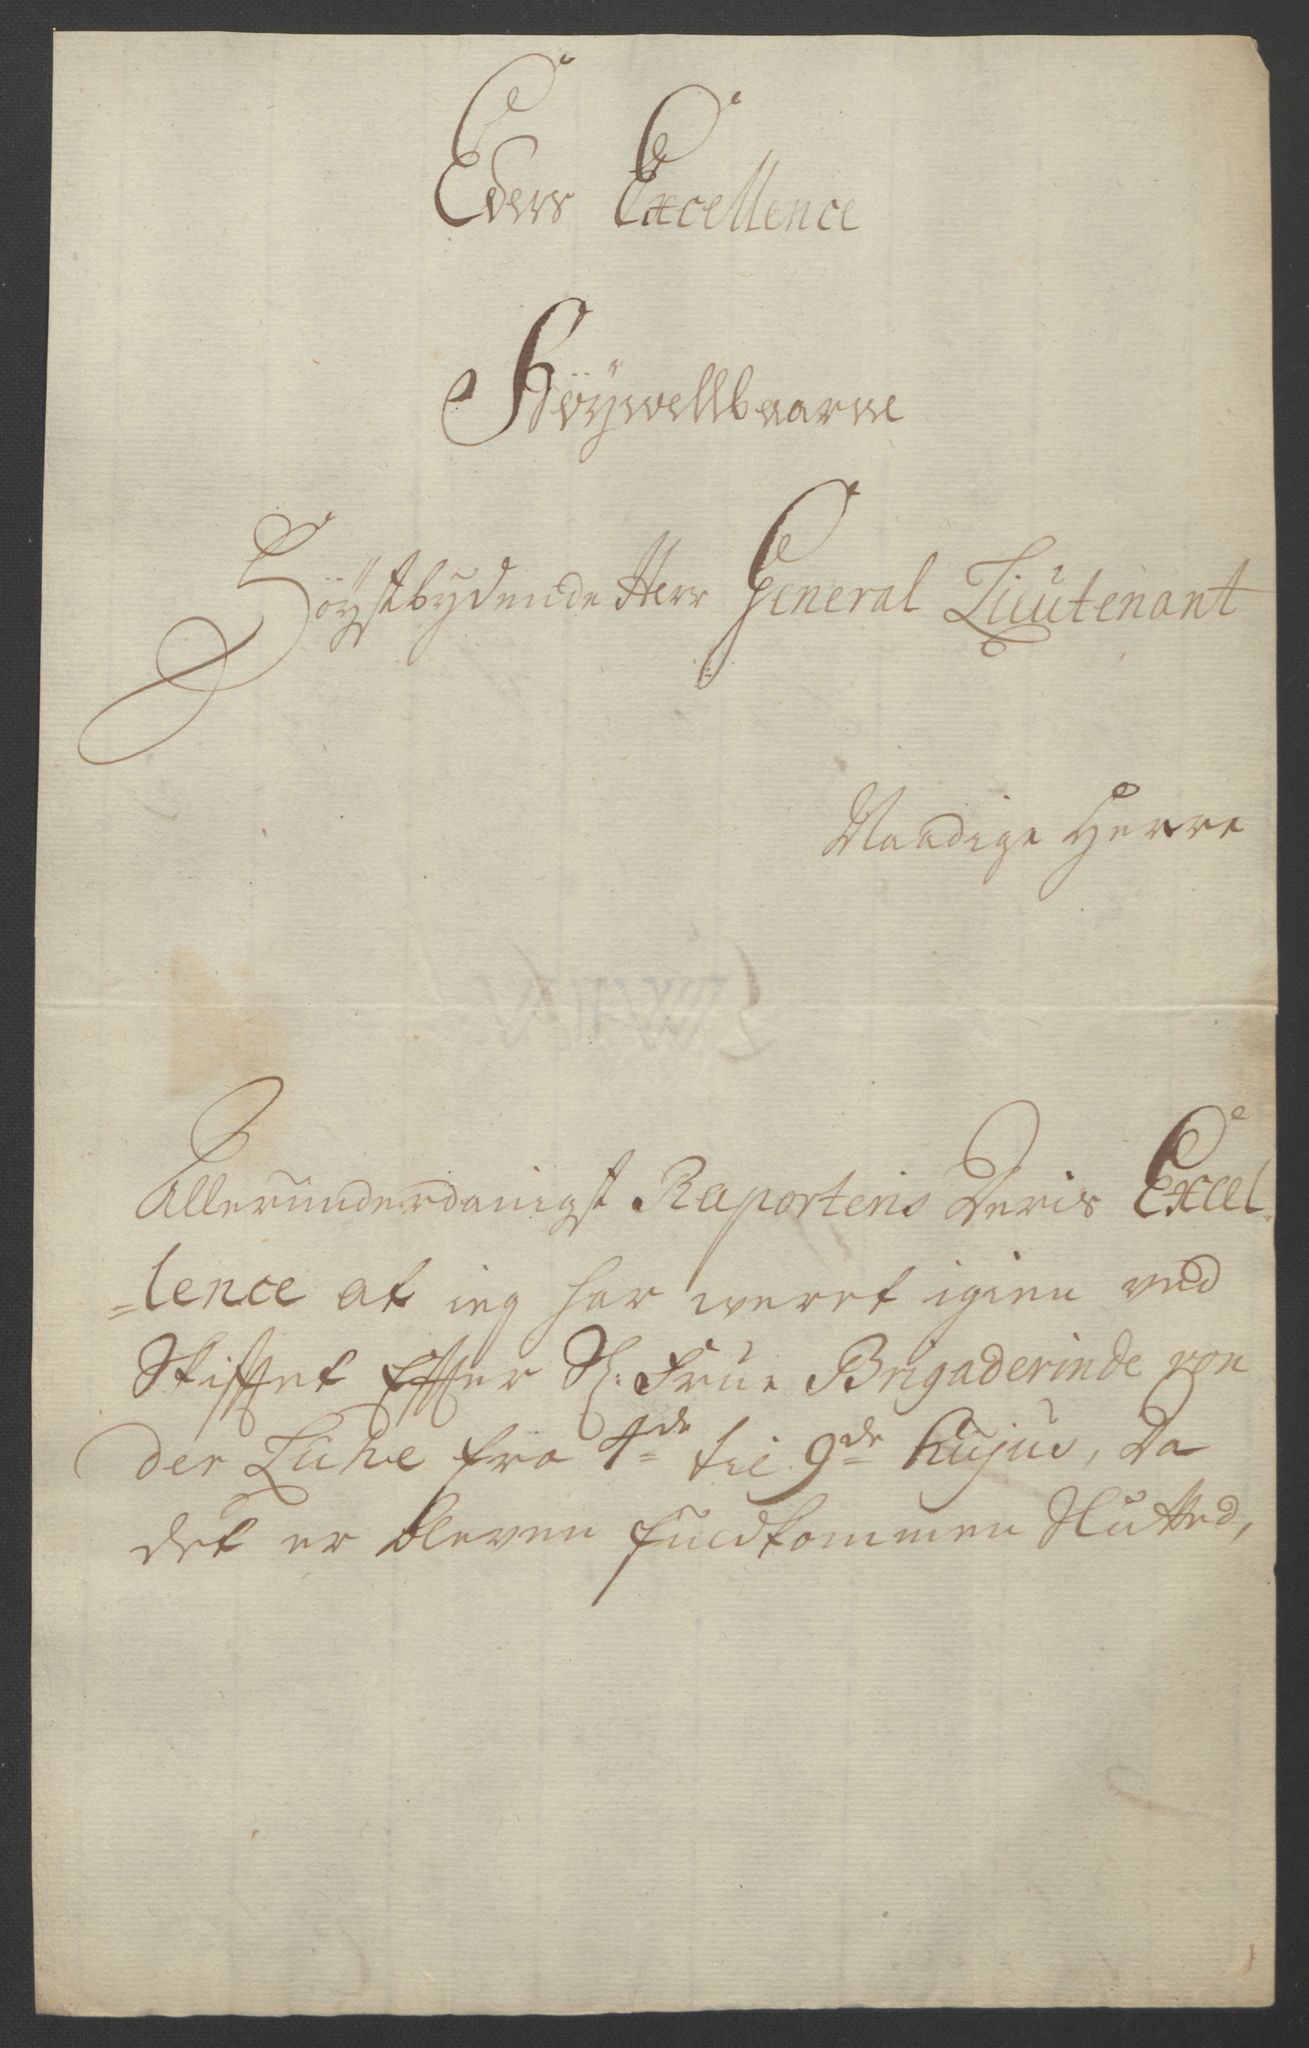 Eders Excellence
Høÿwellbaarne
Höÿstbÿdende Herr General Lieutenant
Naadige Herre
Allerunderdanigst Raporteris Deris Excel-
=lence at ieg har weret igien ved
Skifftet Effter Sl: Frue Brigaderinde von
der Lühe fra 4de til 9de hujus, da
det er bleven fuldkommen Slutted,